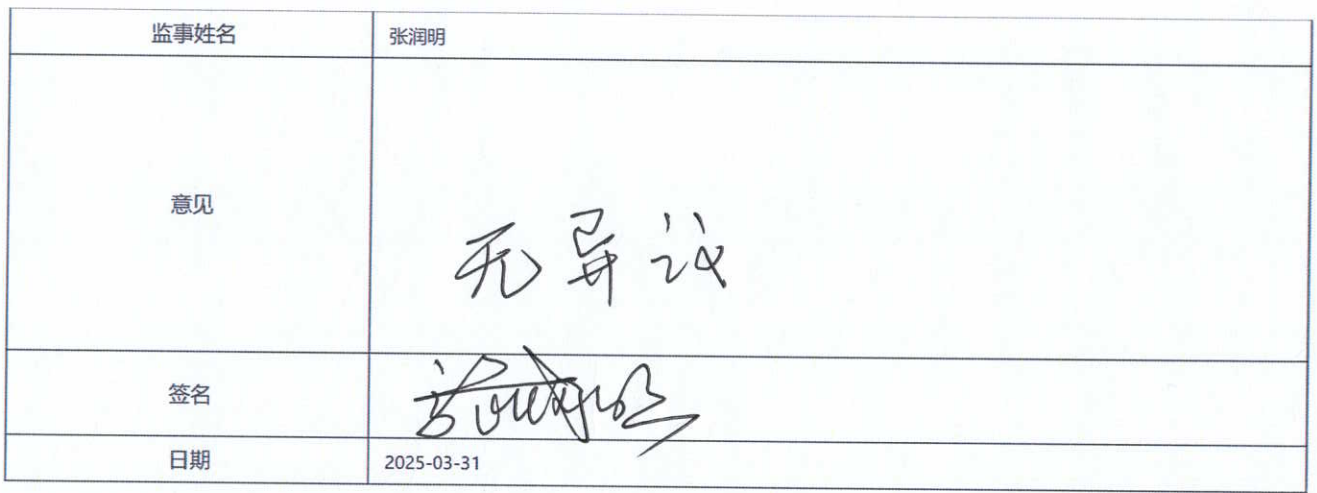 监事姓名 张润明
意见 无异议
签名
日期 2025-03-31